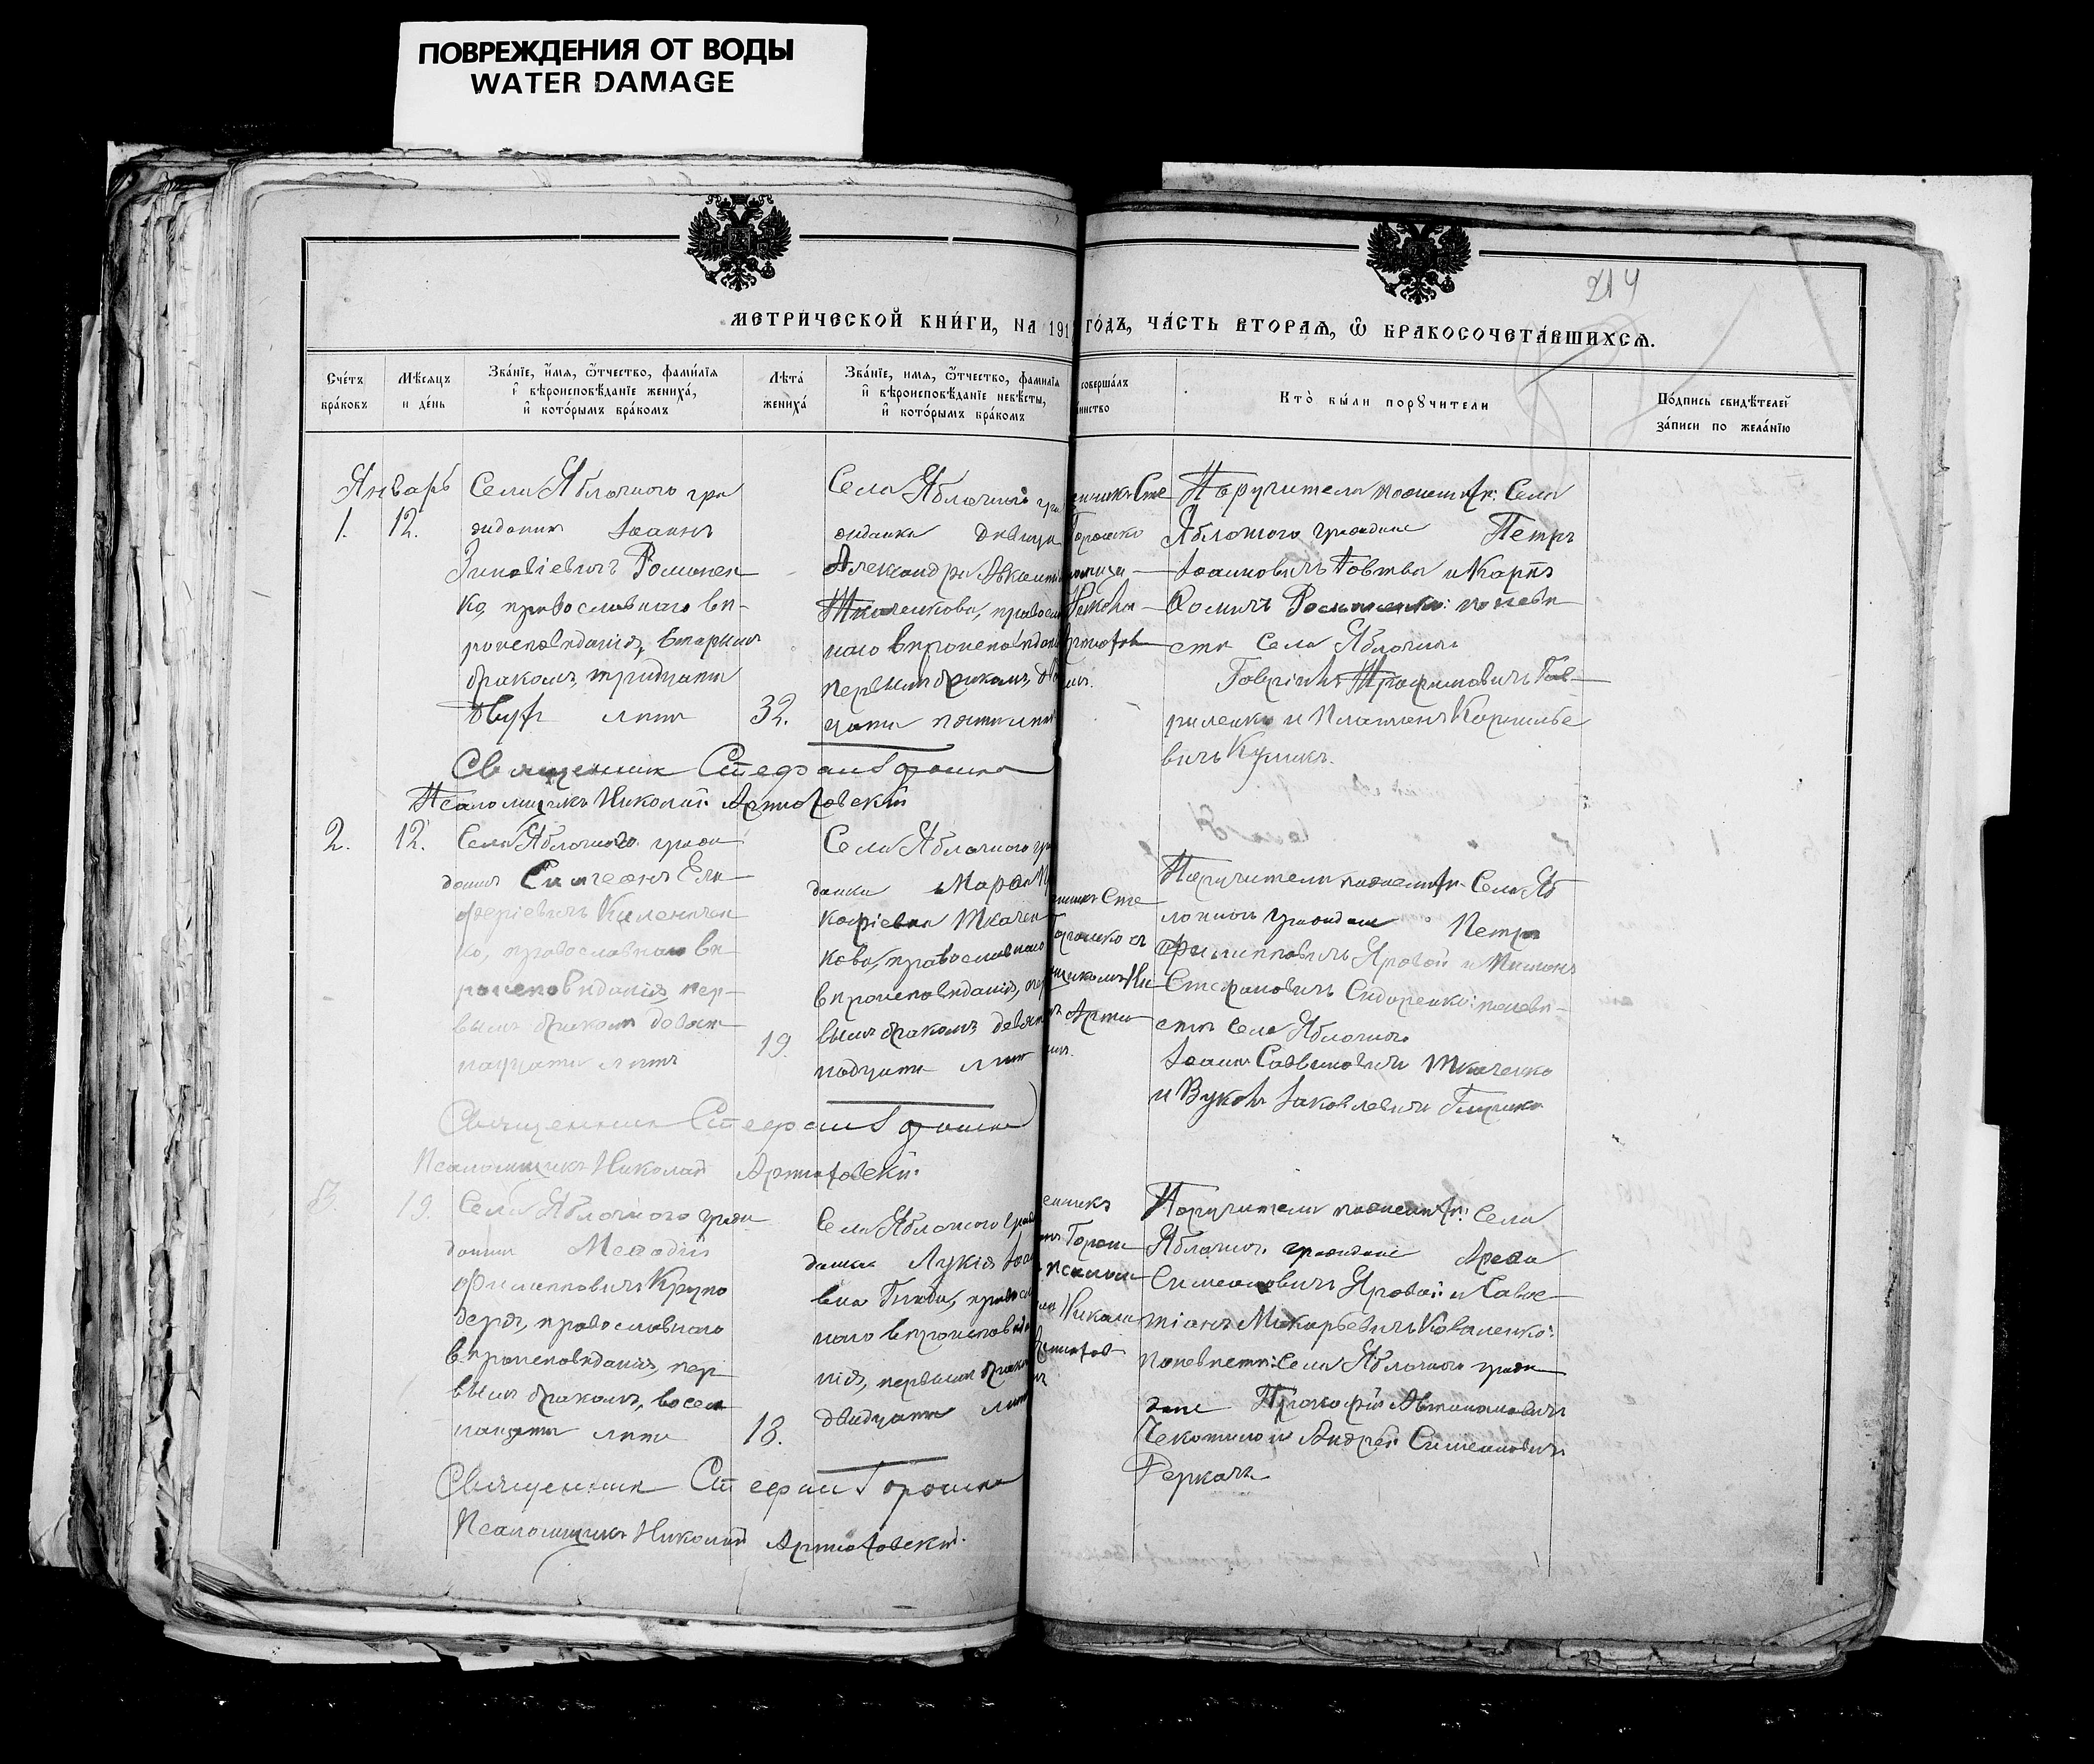 ПОВРЕЖДЕНИЯ ОТ ВОДЫ
WATER DAMAGE
214
МЕТРИ́ЧЕСКОЙ КНИ́ГИ, НА 191
ГО́ДЪ, ЧА́СТЬ ВТОРАѦ, Ѿ БРАКОСОЧЕТА́ВШИХСѦ.
Сче́тъ бра́ковъ
Мѣ́сяцъ и де́нь
Зва́нїе, и́мя, ѻ҆́тчество, фами́лїя
и҆ вѣроисповѣ́данїе жениха́,
и҆ кото́рымъ бра́комъ
Лѣта́ жениха́
Зва́нїе, имя, ѻ҆́тчество, фамилїя
и҆ вѣроисповѣ́данїе невѣ́сты,
и҆ кото́рымъ бра́комъ
соверша́лъ
Кто̀ бы́ли порꙋчители
По́дпись свидѣ́телей
за́писи по жела́нїю
Январь
1.
12.
Села Яблочного гра
жданинъ Іоаннъ
Зиновіевичъ Романен
ко, православнаго вѣ-
роисповѣданія, вторымъ
бракомъ, тридцати
двухъ лѣтъ
32.
Села Яблочного гра
жданка дѣвица
Александра
Ткаченкова, правосл
наго вѣроисповѣдан
первымъ бракомъ, дв
цати пяти лѣтъ
Сте
Горошко
Никола
Артюхов
Поручители по женихѣ: Села
Яблочного граждане Петръ
Іоанновичъ Товтва и Карпъ
Ѳомичъ Романенко: по невѣ
стѣ Села Яблочного
Гавріилъ Трофимовичъ Гав-
риленко и Платонъ Корнилье
вичъ Куликъ.
Священникъ Стефанъ Горошко
Псаломщикъ Николай Артюховскій
2.
12.
Села Яблочного граж
данинъ Симеонъ Ели
феріевичъ
ко, православнаго вѣ
роисповѣданія, пер-
вымъ бракомъ девят
надцати лѣтъ
19.
Села Яблочного гра
данка Марѳа Про
кофіевна Ткачен
кова, православнаго
вѣроисповѣданія, пер
вымъ бракомъ, девят
надцати лѣтъ
Сте
Горошко съ
щикомъ Ни
Артю
Поручители по женихѣ: Села Яб
лочного граждане Петръ
Филипповичъ Яровой и
Стефановичъ Сидоренко: по невѣ-
стѣ Села Яблочного
Іоаннъ Саввиновичъ Ткаченко
и Вуколъ Іаковлевичъ
Священникъ Стефанъ Горошко
Псаломщикъ Николай Артюховскій
3.
19.
Села Яблочного граж
данинъ Меѳодій
Филипповичъ Крупо
деря, православнаго
вѣроисповѣданія, пер
вымъ бракомъ, восем
надцати лѣтъ
18.
Села Яблочного граж
данка Лукія Іоан
вна православ
наго вѣроисповѣда
нія, первымъ браком
двадцати лѣтъ
Горош
псалом
Никола
Артюхов
Поручители по женихѣ: Села
Яблочного граждане Ареѳа
Симеоновичъ Яровой и Савас
тіанъ Макарьевичъ Коваленко:
по невѣстѣ: Села Яблочного граж
дане Прокофій Автономовичъ
Чекотило и Андрей Симеоновичъ
Деркачъ
Священникъ Стефанъ Горошко
Псаломщикъ Николай Артюховскій.